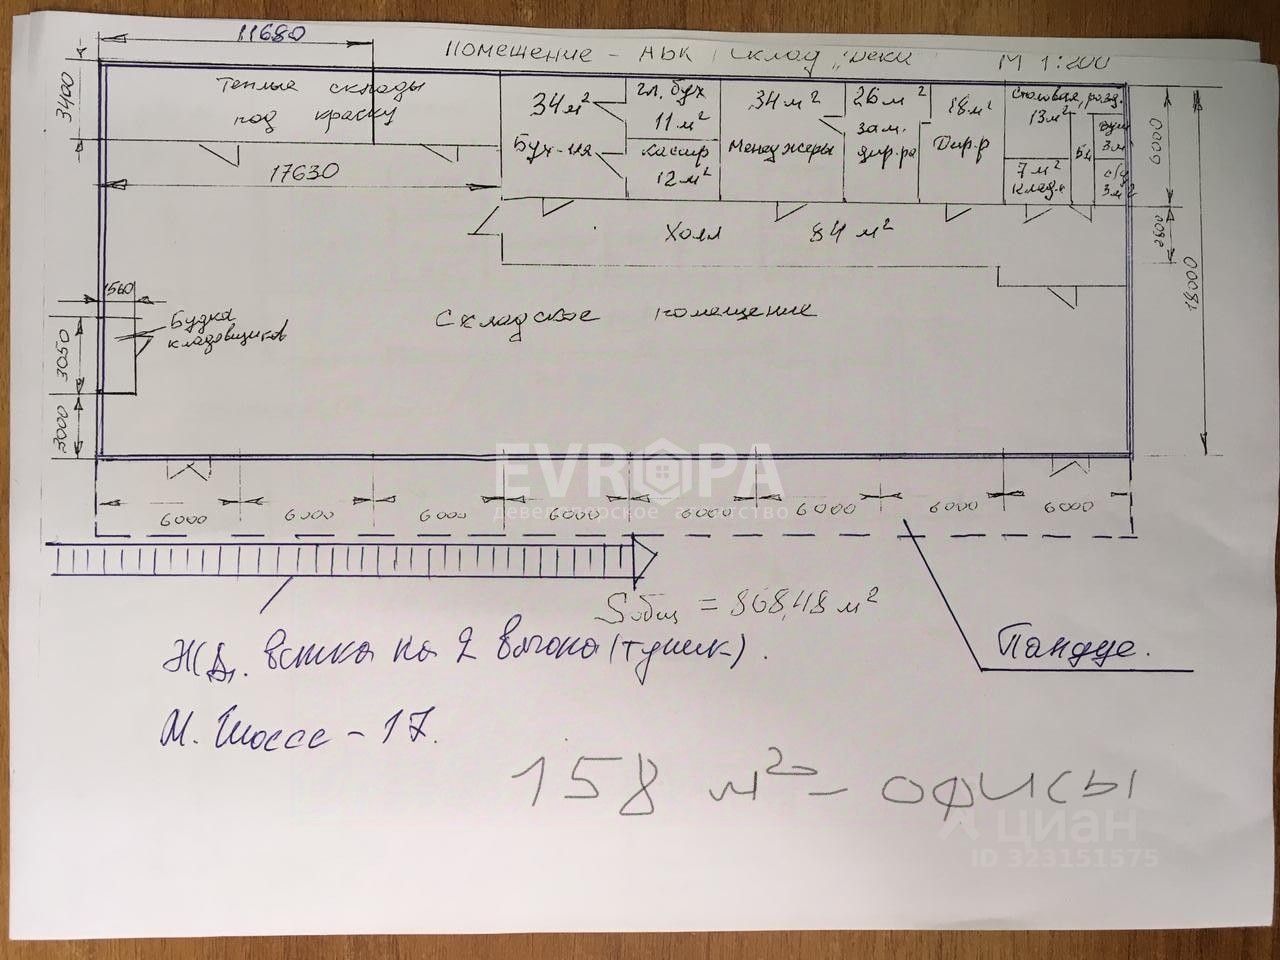 11680
Помещение - НБК
М 1:200
3400
Теплые склады
под краску
17630
34м²
Бух-ия
гл. бух
11м²
кассир
12м²
34м²
Менеджеры
26м²
зам.
дир-ра
18м²
Дир-р
Столовая, разд.
13м²
7м²
клад.
душ
3м²
с/у
3м²
6000
2800
18000
Холл 84 м²
1560
Будка
кладовщиков
3050
3000
Складское помещение
EVROPA
девелоперское агентство
6000 6000 6000 6000 6000 6000 6000 6000
Sобщ = 868,48 м²
ЖД. ветка на 2 вагона (тупик).
Пандус.
М. Шоссе - 17.
158 м² - офисы
циан
ID 323151575